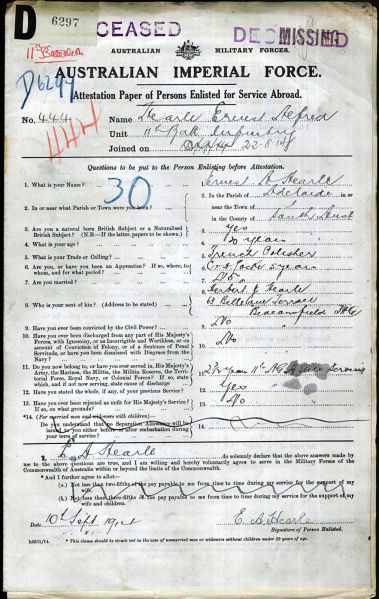 D 6297
CEASED
DEC
MISSING
AUSTRALIAN MILITARY FORCES.
11th Battalion
AUSTRALIAN IMPERIAL FORCE.
D 6297
Attestation Paper of Persons Enlisted for Service Abroad.
No. 444 Name Hearle Ernest Alfred
444
Unit 11th Batt Infantry
Joined on 22-8-14
Questions to be put to the Person Enlisting before Attestation.
30
1. What is your Name? 1. Ernest A Hearle
2. In or near what Parish or Town were you born? 2. In the Parish of Adelaide in or
near the Town of
in the County of South Aust
3. Are you a natural born British Subject or a Naturalised
British Subject? (N.B.—If the latter, papers to be shown.) 3. Yes
4. What is your age? 4. years
5. What is your Trade or Calling? 5. French Polisher
6. Are you, or have you been an Apprentice? If so, where,
to whom, and for what period? 6. 5 years
7. Are you married? 7. No
8. Who is your next of kin? (Address to be stated) 8. Herbert J Hearle
Bellevue Terrace
Beaconsfield
9. Have you ever been convicted by the Civil Power? 9. No
10. Have you ever been discharged from any part of His Majesty's
Forces, with Ignominy, or as Incorrigible and Worthless, or
on account of Conviction of Felony, or of a Sentence of Penal
Servitude, or have you been dismissed with Disgrace from the
Navy? 10. No
11. Do you now belong to, or have you ever served in, His Majesty's
Army, the Marines, the Militia, the Militia Reserve, the Terri-
torial Force, Royal Navy, or Colonial Forces? If so, state
which, and if not now serving, state cause of discharge 11. Serving
12. Have you stated the whole, if any, of your previous Service? 12. Yes
13. Have you ever been rejected as unfit for His Majesty's Service?
If so, on what grounds? 13. No
*14. (For married men and widowers with children)—
Do you understand that no Separation Allowance will be
issued to you either before or after embarkation during
your term of service? 14.
I, E A Hearle do solemnly declare that the above answers made by
me to the above questions are true, and I am willing and hereby voluntarily agree to serve in the Military Forces of the
Commonwealth of Australia within or beyond the limits of the Commonwealth.
*And I further agree to allot—
(a.) Not less than two-fifths of the pay payable to me from time to time during my service for the support of my
wife.
(b.) Not less than three-fifths of the pay payable to me from time to time during my service for the support of my
wife and children.
Date 10th Sept 1914 E. A. Hearle
Signature of Person Enlisted.
* This clause should be struck out in the case of unmarried men or widowers without children under 18 years of age.